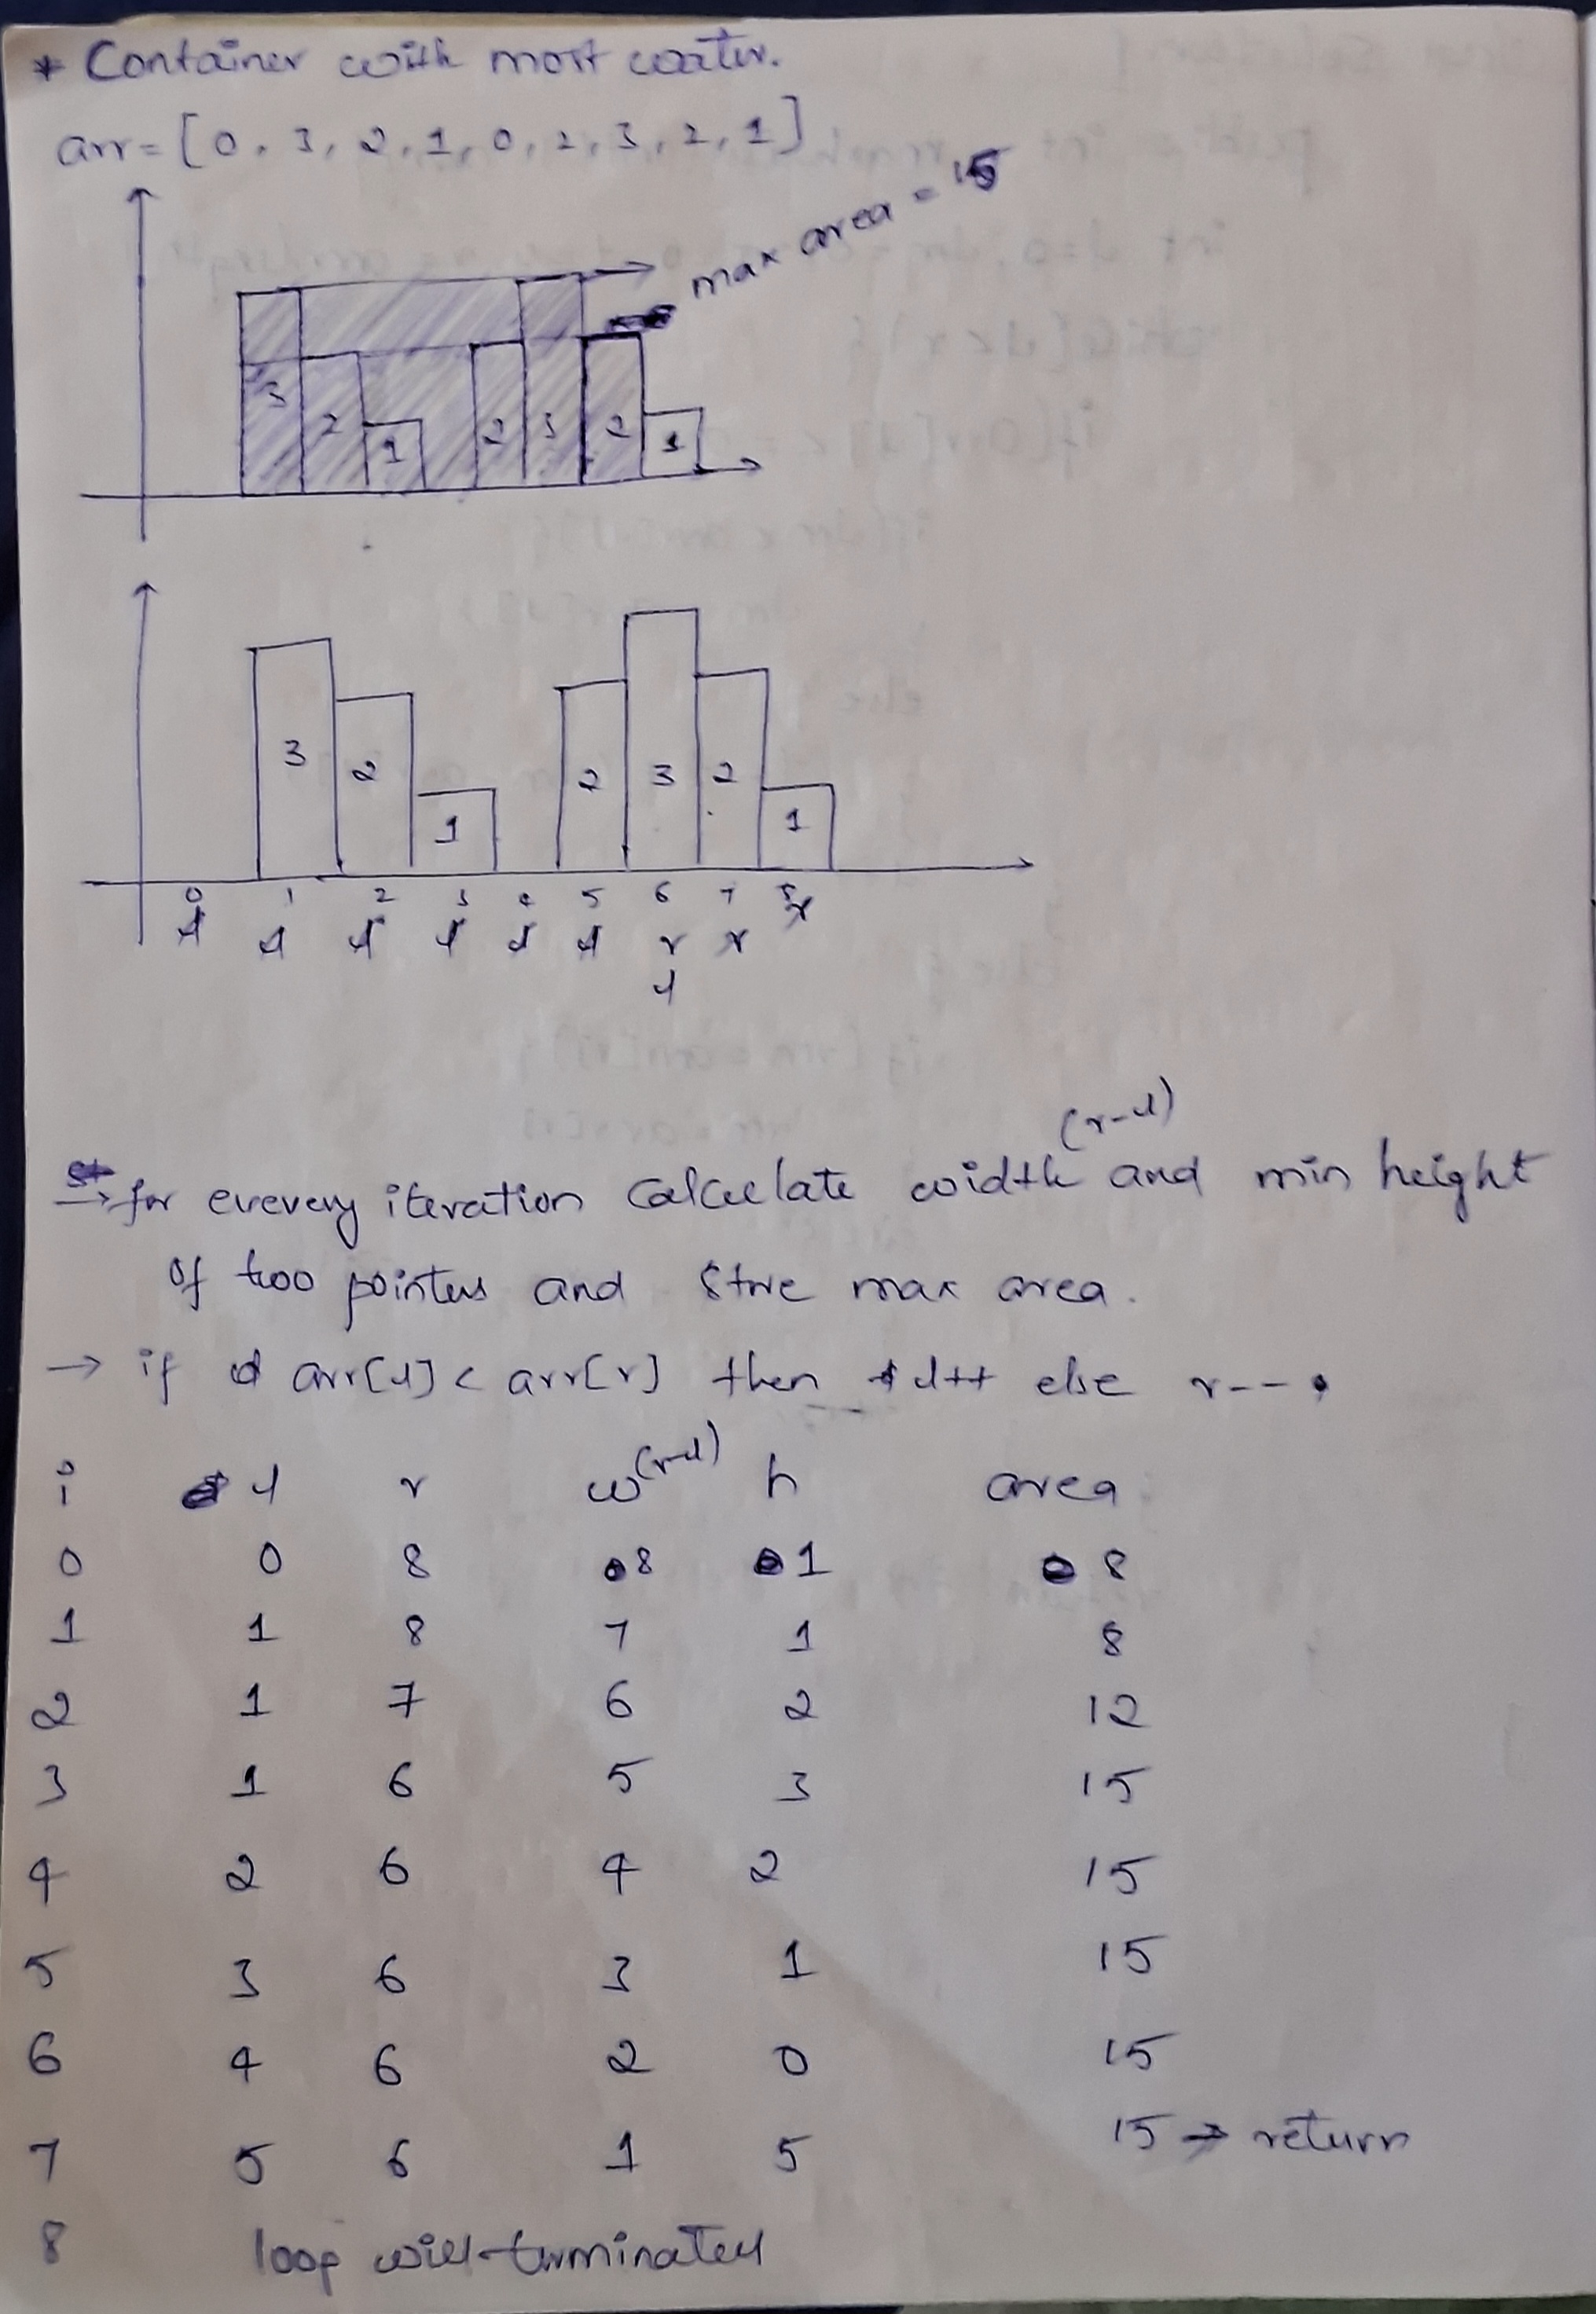 * Container with most water.
arr = [0, 3, 2, 1, 0, 2, 3, 2, 1]
max area = 15
3 2 1 2 3 2 1
3 2 1 2 3 2 1
0 1 2 3 4 5 6 7 8
l l l l l l r r r
l
(r-l)
→ for evevery iteration calculate width and min height
of two pointers and store max area.
→ if arr[l] < arr[r] then l++ else r--.
i l r w(r-l) h area
0 0 8 8 1 8
1 1 8 7 1 8
2 1 7 6 2 12
3 1 6 5 3 15
4 2 6 4 2 15
5 3 6 3 1 15
6 4 6 2 0 15
7 5 6 1 5 15 → return
8 loop will terminated